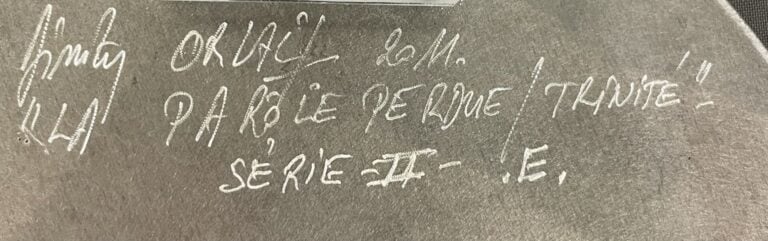 ORLAÏS 2011.
"LA PAROLE PERDUE / TRINITÉ"
SÉRIE -II- .E.